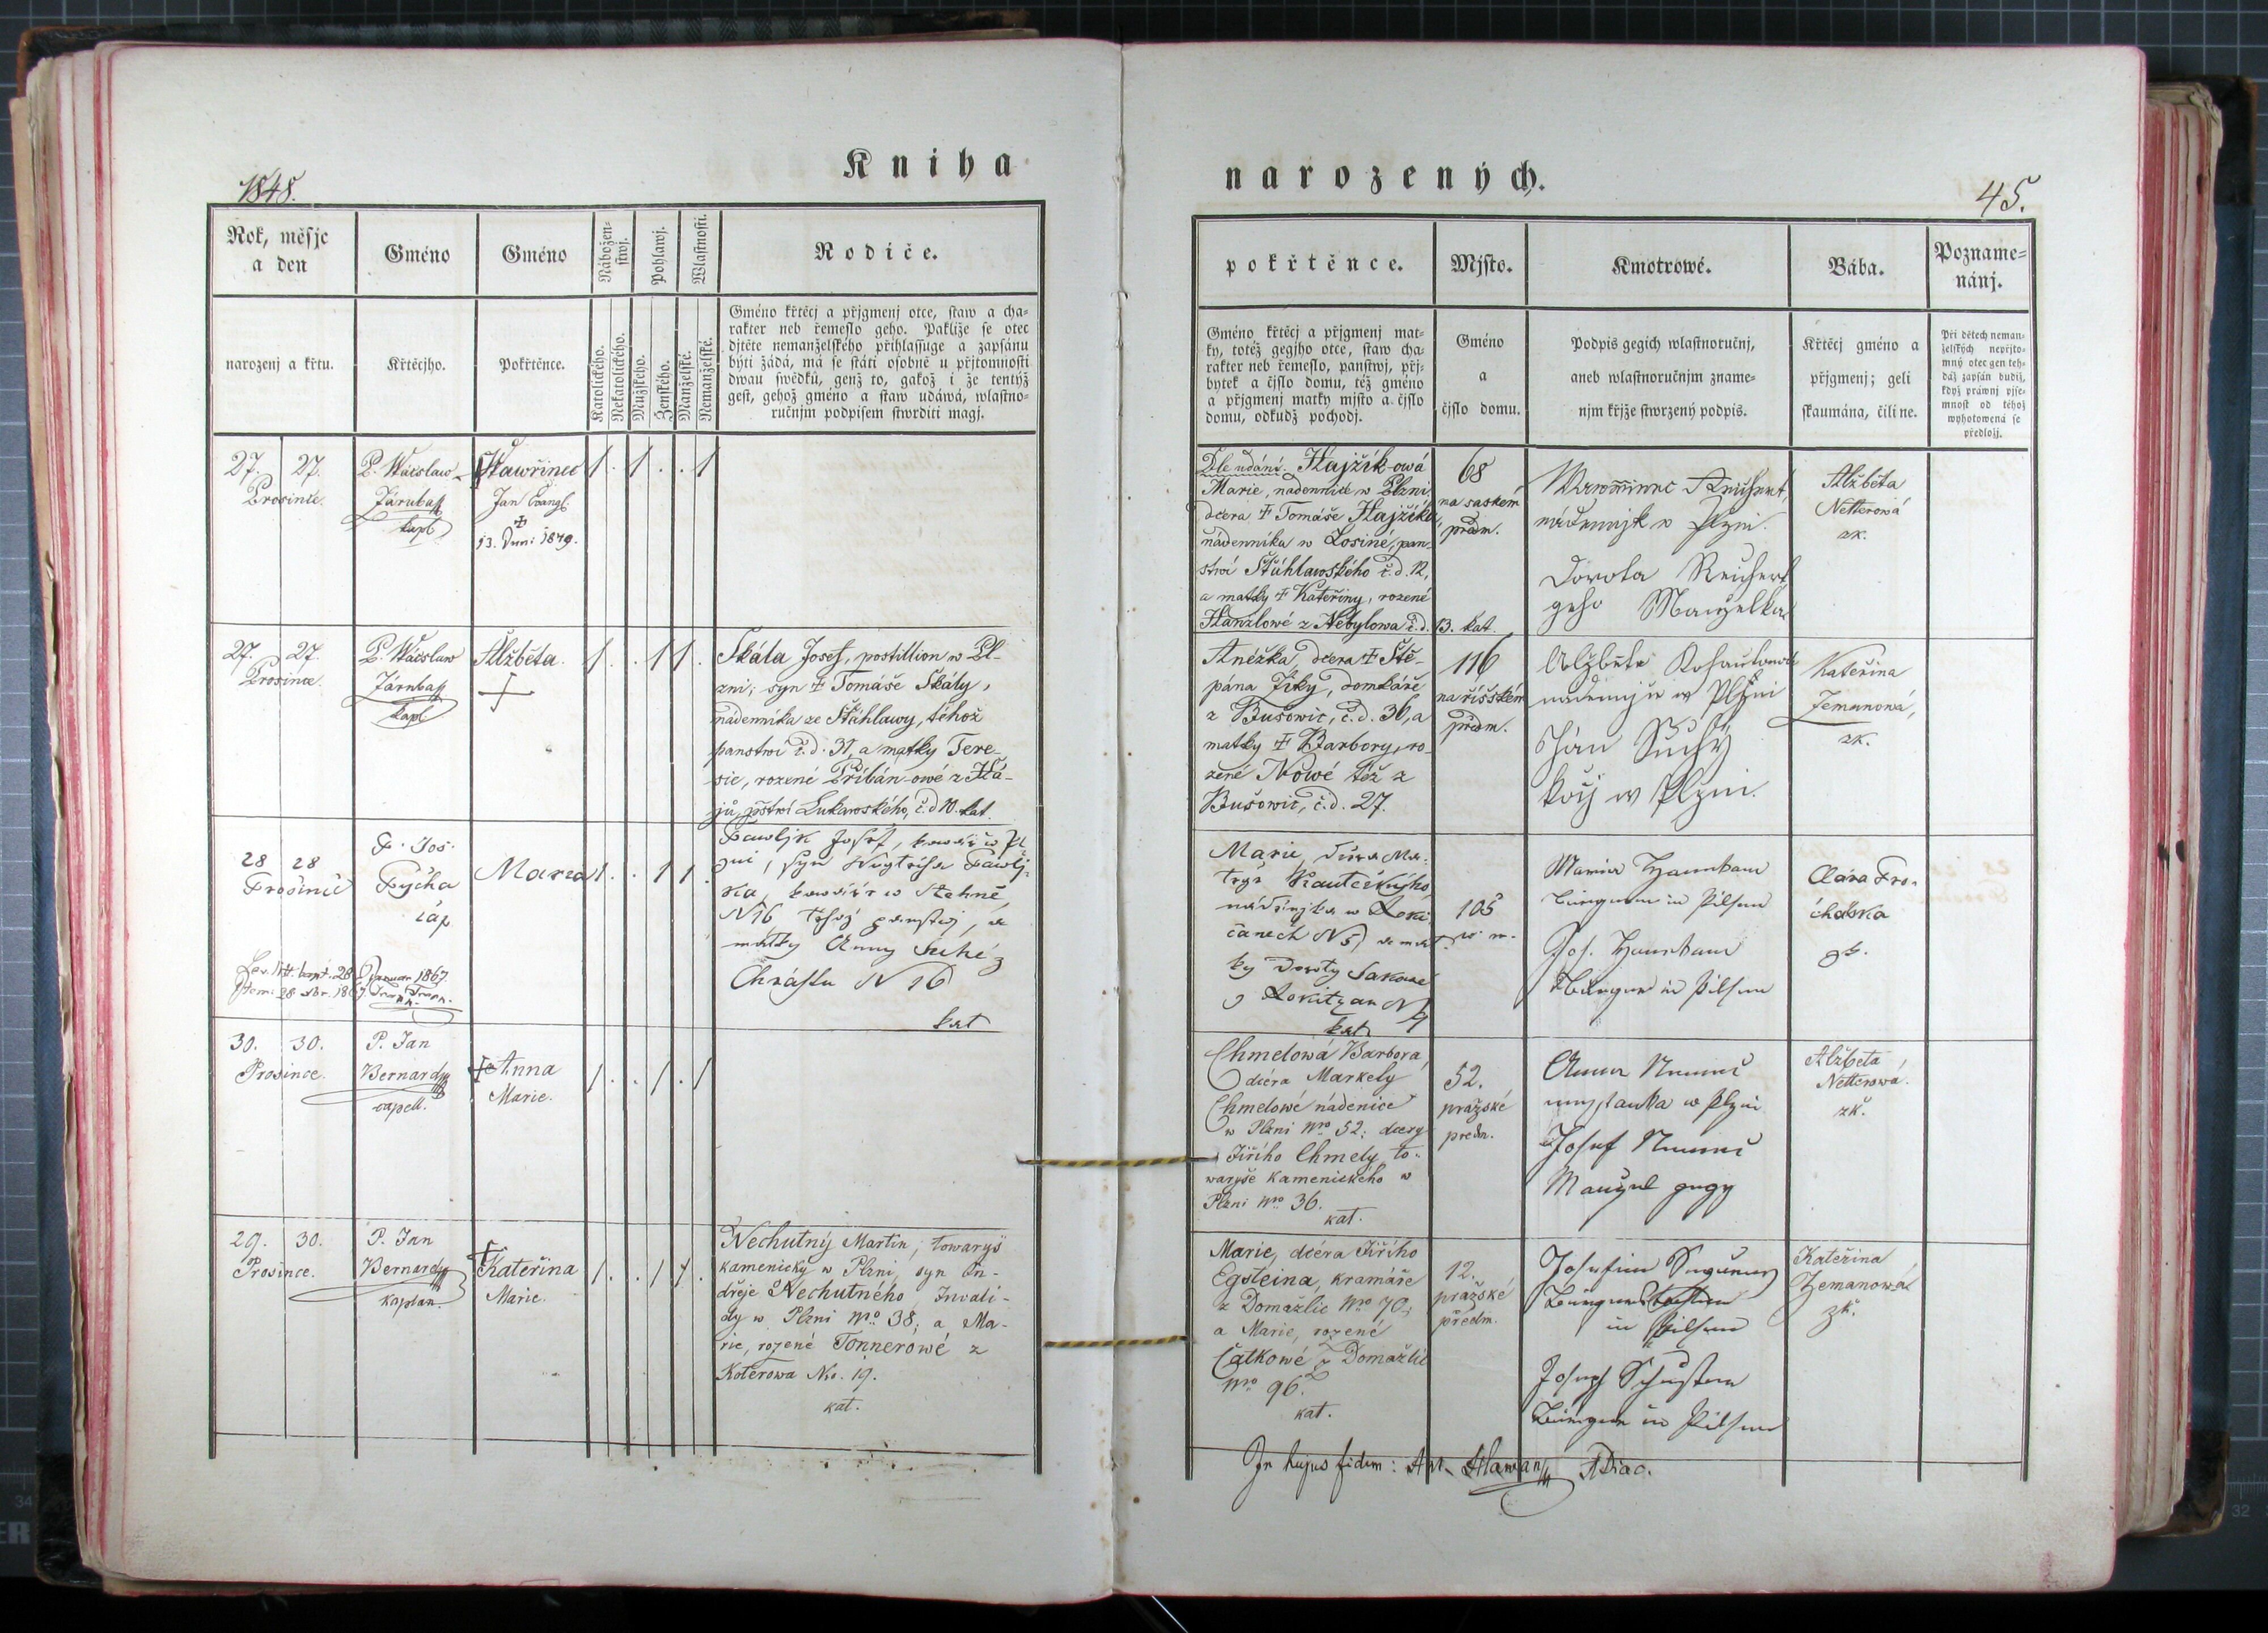 Kniha
1848.
Rok, měsjc
a den
Gméno
Gméno
Nábožen-
stwj.
Pohlawj.
Wlastnosti.
Rodiče.
narozenj a křtu.
Křtěcýho.
Pokřtěnce.
Katolického.
Nekatolického.
Mužského.
Ženského.
Manželské.
Nemanželské.
Gméno křtěcj a přjgmenj otce, staw a cha-
rakter neb řemeslo geho. Pakliže se otec
djtěte nemanželského přihlassuge a zapsánu
býti žádá, má se státi osobně u přjtomnosti
dwau swědků, genž to, gakož i že tentýž
gest, gehož gméno a staw udáwá, wlastno-
ručnjm podpisem stwrditi magj.
27. 27.
Prosince.
P. Wácslaw
Járubaß
kapl
Wawřinec
Jan Evangl.
+
13. Juni 1879.
1 . 1 . . 1
27. 27.
Prosince.
P. Wácslaw
Járubaß
kapl
Alžběta.
+
1 . . 1 1 .
Skála Josef, postillion w Pl-
zni, syn + Tomáše Skály,
nádenníka ze Štáhlawy, téhož
panstwí č.d. 31, a matky Tere-
sie, rozené Přibán-owé z Há-
jů, pstwí Lukawského, č.d 10. kat.
28 28
Prosinec
P. Jos.
Pýcha
cap
Maria
1 . . 1 1 .
Pawljk Josef, kowář w Pl-
zni, syn Wogtěcha Pawlj-
ka, kowáře w
N 16 téhož panstwj, a
matky Anny Suché z
Chrástu N 16
kat
30. 30.
Prosince.
P. Jan
Bernard
capell.
+ Anna
Marie.
1 . . 1 . 1
29. 30.
Prosince.
P. Jan
Bernard
kaplan.
+
Kateřina
Marie.
1 . . 1 1 .
Nechutný Martin, towaryš
kamenický w Plzni, syn On-
dřeje Nechutného Invali-
dy w Plzni Nro. 38; a Ma-
rie, rozené Tonnerowé z
Koterowa Nro. 19.
kat.
narozených.
45.
pokřtěnce.
Mjsto.
Kmotrowé.
Bába.
Pozname-
nánj.
Gméno křtěcj a přjgmenj mat-
ky, totéž gegjho otce, staw cha-
rakter neb řemeslo, panstwj, přj-
bytek a čjslo domu, též gméno
a přjgmenj matky mjsto a čjslo
domu, odkudž pochodj.
Gméno
a
čjslo domu.
Podpis gegich wlastnoručnj,
aneb wlastnoručnjm zname-
njm křjže stwrzený podpis.
Křtěcj gméno a
přjgmenj; geli
skaumána, čili ne.
Při dětech neman-
želských nepřjto-
mný otec gen teh-
dáž zapsán budiž,
když práwnj pjse-
mnost od téhož
wyhotowená se
předložj.
Dle udání Hajžík-owá
Marie, nadennice w Plzni,
dcera + Tomáše Hajžíka,
nádenníka w Losiné, pan-
stwí Štáhlawského č.d. 12,
a matky + Kateřiny, rozené
Hanzlowé z Nebylowa č.d. 13. kat.
68
na saském
předm.
Wawřinec Reichert
nádennjk w Plzni.
Dorota Reichert
geho Manželka
Alžběta
Netterowá
zk.
Anežka, dcera + Ště-
pána Jíky, domkáře
z Bušowic, č.d. 36, a
matky + Barbory, ro-
zené Nowé též z
Bušowic, č.d. 27.
116
na říšském
předm.
Alžběta
w Plzni
Jan Suchý
kočj w Plzni.
Kateřina
Zemanowá,
zk.
Marie, dcera Ma-
teje Kauteckýho
nádenjka w Roki-
canech N 5, a mat-
ky Doroty
z Rokitzan N 4
kat
105
Maria Hambaum
Bürgerin in Pilsen
Jos. Hambaum
Bürger in Pilsen
Clara Pro-
cháska
gk.
Chmelowá Barbora
dcéra Markely
Chmelowé nádenice
w Plzni Nro 52; dcery
Jiřího Chmely to-
waryše kamenického w
Plzni Nro 36.
kat.
52.
pražské
předm.
Anna Nemec
w Plzni
Josef Nemec
Manžel gegy
Alžběta
Netterowa.
zk.
Marie, dcéra Jiřího
Egsteina, kramáře
z Domažlic Nro 70;
a Marie, rozené
Čatkowé z Domažlic
Nro 96.
kat.
12.
pražské
předm.
in Pilsen
Joseph Schuster
Bürger in Pilsen
Kateřina
Zemanowá
zk.
In hujus fidem: Ant. Hlawan ADiac.